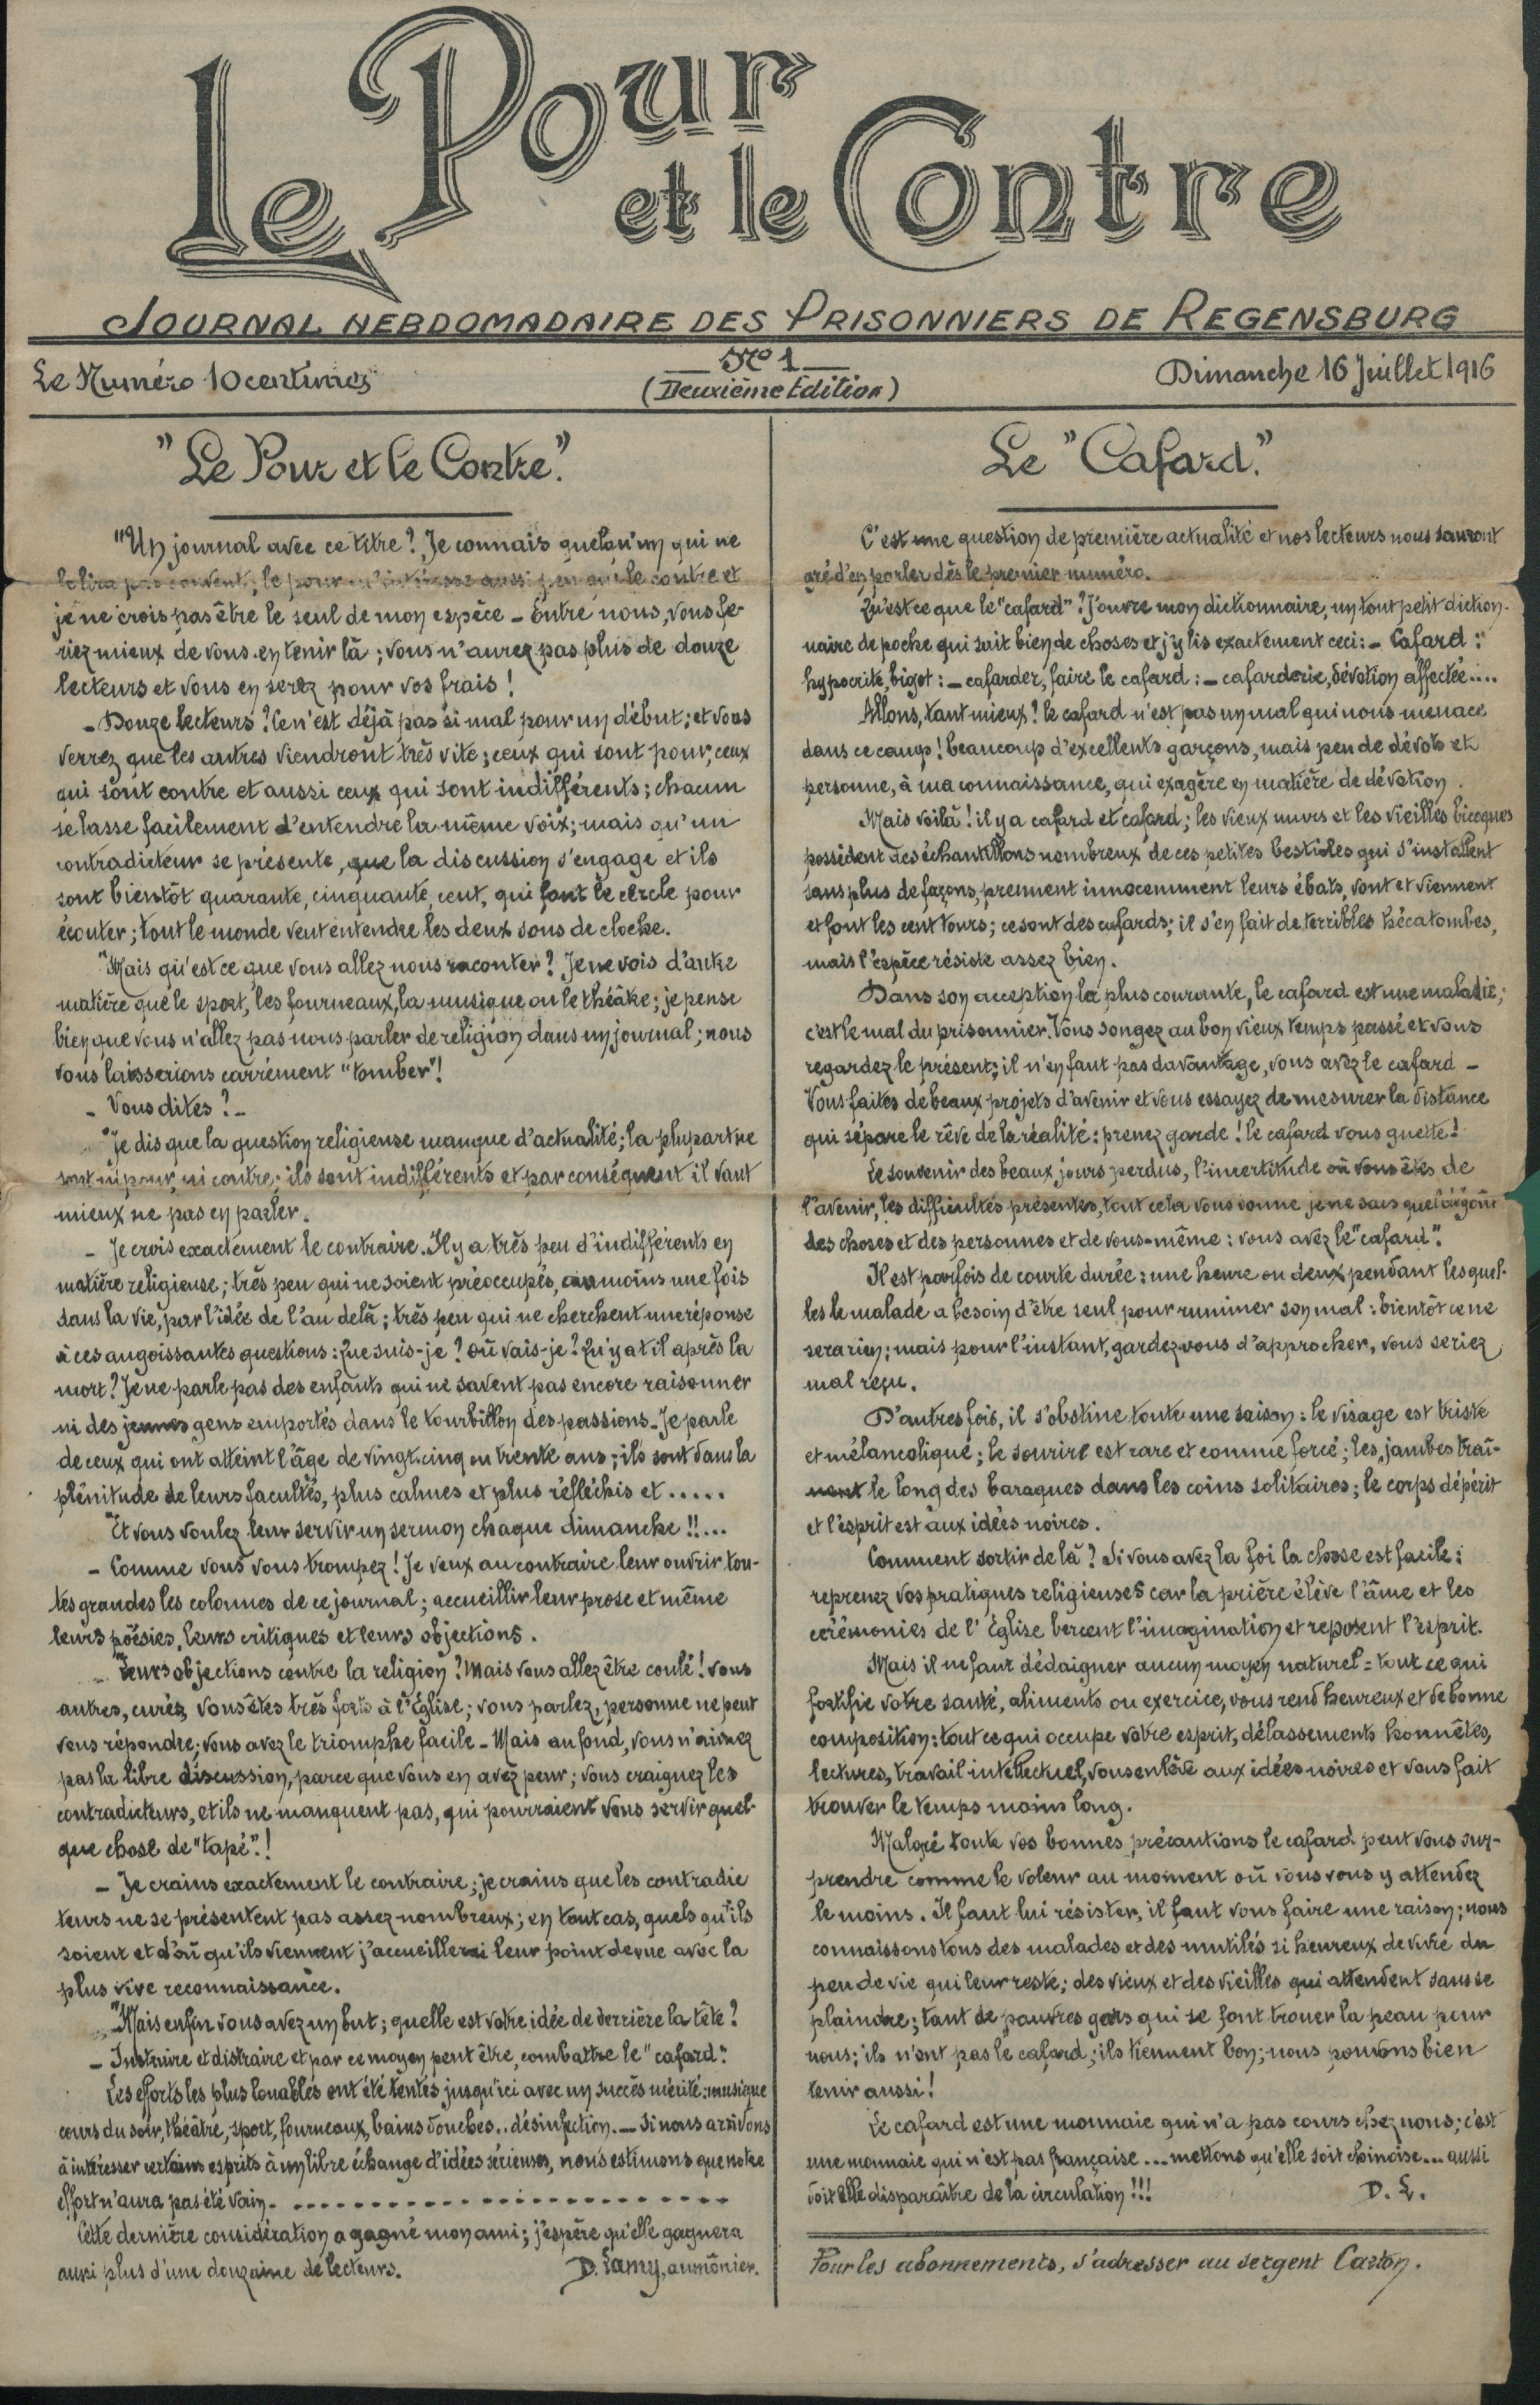 Le Pour
et le Contre
JOURNAL HEBDOMADAIRE DES PRISONNIERS DE REGENSBURG
Le Numéro 10 centimes
No 1
(Deuxième Edition)
Dimanche 16 Juillet 1916
"Le Pour et le Contre".
"Un journal avec ce titre? Je connais quelqu'un qui ne
le lira pas souvent; le pour m'intéresse aussi peu que le contre et
je ne crois pas être le seul de mon espèce - Entre nous, vous fe-
riez mieux de vous en tenir là; vous n'aurez pas plus de douze
lecteurs et vous en serez pour vos frais!
- Douze lecteurs? Ce n'est déjà pas si mal pour un début; et vous
verrez que les autres viendront très vite; ceux qui sont pour, ceux
qui sont contre et aussi ceux qui sont indifférents; chacun
se lasse facilement d'entendre la même voix; mais qu'un
contradicteur se présente, que la discussion s'engage et ils
sont bientôt quarante, cinquante, cent, qui font le cercle pour
écouter; tout le monde veut entendre les deux sons de cloche.
"Mais qu'est ce que vous allez nous raconter? Je ne vois d'autre
matière que le sport, les fourneaux, la musique ou le théâtre; je pense
bien que vous n'allez pas nous parler de religion dans un journal; nous
vous laisserions carrément "tomber"!
- Vous dites? -
"Je dis que la question religieuse manque d'actualité; la plupart ne
sont ni pour, ni contre; ils sont indifférents et par conséquent il vaut
mieux ne pas en parler.
- Je crois exactement le contraire. Il y a très peu d'indifférents en
matière religieuse; très peu qui ne soient préoccupés, au moins une fois
dans la vie, par l'idée de l'au delà; très peu qui ne cherchent une réponse
à ces angoissantes questions: Que suis-je? Où vais-je? Qu'y a t il après la
mort? Je ne parle pas des enfants qui ne savent pas encore raisonner
ni des jeunes gens emportés dans le tourbillon des passions - Je parle
de ceux qui ont atteint l'âge de vingt-cinq ou trente ans; ils sont dans la
plénitude de leurs facultés, plus calmes et plus réfléchis et .....
"Et vous voulez leur servir un sermon chaque dimanche!!...
- Comme vous vous trompez! Je veux au contraire leur ouvrir tou-
tes grandes les colonnes de ce journal; accueillir leur prose et même
leurs poésies, leurs critiques et leurs objections.
"Leurs objections contre la religion? Mais vous allez être coulé! Vous
autres, curés, vous êtes très forts à l'Église; vous parlez, personne ne peut
vous répondre; vous avez le triomphe facile - Mais au fond, vous n'aimez
pas la libre discussion, parce que vous en avez peur; vous craignez les
contradicteurs, et ils ne manquent pas, qui pourraient vous servir quel-
que chose de "tapé"!
- Je crains exactement le contraire; je crains que les contradic
teurs ne se présentent pas assez nombreux; en tout cas, quels qu'ils
soient et d'où qu'ils viennent j'accueillerai leur point de vue avec la
plus vive reconnaissance.
"Mais enfin vous avez un but; quelle est votre idée de derrière la tête?
- Instruire et distraire et par ce moyen peut être, combattre le "cafard".
Les efforts les plus louables ont été tentés jusqu'ici avec un succès mérité: musique
cours du soir, théâtre, sport, fourneaux, bains douches.. désinfection. - Si nous arrivons
à intéresser certains esprits à un libre échange d'idées sérieuses, nous estimons que notre
effort n'aura pas été vain. - - - - - - - - - - - - - - - - - - - - -
Cette dernière considération a gagné mon ami; j'espère qu'elle gagnera
aussi plus d'une douzaine de lecteurs.
D. Lamy, aumônier.
Le "Cafard."
C'est une question de première actualité et nos lecteurs nous sauront
gré d'en parler dès le premier numéro.
Qu'est ce que le "cafard"? J'ouvre mon dictionnaire, un tout petit diction-
naire de poche qui sait bien de choses et j'y lis exactement ceci: - Cafard:
hypocrite, bigot: - cafarder, faire le cafard: - cafarderie, dévotion affectée....
Allons, tant mieux! le cafard n'est pas un mal qui nous menace
dans ce camp! beaucoup d'excellents garçons, mais peu de dévots et
personne, à ma connaissance, qui exagère en matière de dévotion.
Mais voilà! il y a cafard et cafard; les vieux murs et les vieilles bicoques
possèdent des échantillons nombreux de ces petites bestioles qui s'installent
sans plus de façons, prennent innocemment leurs ébats, vont et viennent
et font les cent tours; ce sont des cafards; il s'en fait de terribles hécatombes,
mais l'espèce résiste assez bien.
Dans son acception la plus courante, le cafard est une maladie;
c'est le mal du prisonnier. Vous songez au bon vieux temps passé et vous
regardez le présent; il n'en faut pas davantage, vous avez le cafard -
Vous faites de beaux projets d'avenir et vous essayez de mesurer la distance
qui sépare le rêve de la réalité: prenez garde! le cafard vous guette!
Le souvenir des beaux jours perdus, l'incertitude où vous êtes de
l'avenir, les difficultés présentes, tout cela vous donne je ne sais quel dégoût
des choses et des personnes et de vous-même: vous avez le "cafard".
Il est parfois de courte durée: une heure ou deux pendant lesquel-
les le malade a besoin d'être seul pour ruminer son mal: bientôt ce ne
sera rien; mais pour l'instant, gardez-vous d'approcher, vous seriez
mal reçu.
D'autres fois, il s'obstine toute une saison: le visage est triste
et mélancolique; le sourire est rare et comme forcé; les jambes traî-
nent le long des baraques dans les coins solitaires; le corps dépérit
et l'esprit est aux idées noires.
Comment sortir de là? Si vous avez la foi la chose est facile:
reprenez vos pratiques religieuses car la prière élève l'âme et les
cérémonies de l'Église bercent l'imagination et reposent l'esprit.
Mais il ne faut dédaigner aucun moyen naturel = tout ce qui
fortifie votre santé, aliments ou exercice, vous rend heureux et de bonne
composition: tout ce qui occupe votre esprit, délassements honnêtes,
lectures, travail intellectuel, vous enlève aux idées noires et vous fait
trouver le temps moins long.
Malgré toute vos bonnes précautions le cafard peut vous sur-
prendre comme le voleur au moment où vous vous y attendez
le moins. Il faut lui résister, il faut vous faire une raison; nous
connaissons tous des malades et des mutilés si heureux de vivre du
peu de vie qui leur reste; des vieux et des vieilles qui attendent sans se
plaindre; tant de pauvres gens qui se font trouer la peau pour
nous; ils n'ont pas le cafard; ils tiennent bon; nous pouvons bien
tenir aussi!
Le cafard est une monnaie qui n'a pas cours chez nous; c'est
une monnaie qui n'est pas française ... mettons qu'elle soit chinoise... aussi
doit elle disparaître de la circulation!!!
D. L.
Pour les abonnements, s'adresser au sergent Carton.